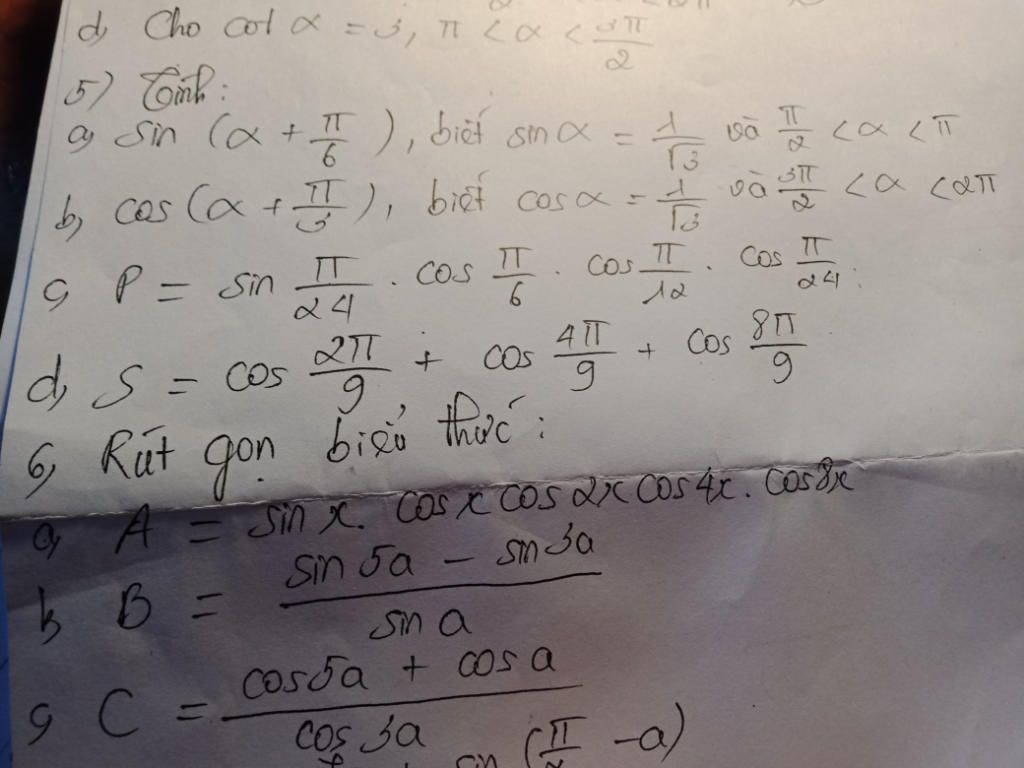 d, Cho cot α = 3, π < α < 3π/2
5) Tính:
a, sin (α + π/6), biết sin α = 1/√3 và π/2 < α < π
b, cos (α + π/3), biết cos α = 1/√3 và 3π/2 < α < 2π
c, P = sin π/24 . cos π/6 . cos π/12 . cos π/24.
d, S = cos 2π/9 + cos 4π/9 + cos 8π/9
6, Rút gọn biểu thức:
a, A = sin x. cos x cos 2x cos 4x. cos 8x
b, B = (sin 5a - sin 3a)/(sin a)
c, C = (cos 5a + cos a)/(cos 3a)
sin (π/2 - a)